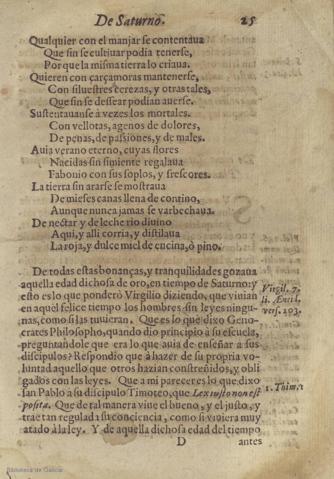 De Saturno. 25
Qualquier con el manjar se contentaua
Que sin se cultiuar podia tenerse,
Por que la misma tierra lo criaua.
Quieren con çarçamoras mantenerse,
Con siluestres cerezas, y otras tales,
Que sin se dessear podian auerse.
Sustentauanse à vezes los mortales.
Con vellotas, agenos de dolores,
De penas, de passiones, y de males.
Auia verano eterno, cuyas flores
Nacidas sin simiente regalaua
Fabonio con sus soplos, y frescores.
La tierra sin ararse se mostraua
De mieses canas llena de contino,
Aunque nunca jamas se varbechaua.
De nectar y de leche rio diuino
Aqui, y alli corria, y distilaua
La roja, y dulce miel de encina, ò pino.
De todas estas bonanças, y tranquilidades gozaua
aquella edad dichosa de oro, en tiempo de Saturno: y
esto es lo que ponderò Virgilio diziendo, que viuian
en aquel felice tiempo los hombres sin leyes ningu-
nas, como si las tuuieran. Que es lo que dixo Geno-
crates Philosopho, quando dio principio a su escuela,
preguntandole que era lo que auia de enseñar a sus
discipulos? Respondio que à hazer de su propria vo-
luntad aquello que otros hazian constreñidos, y obli
gados con las leyes. Que a mi parecer es lo que dixo
san Pablo a su discipulo Timoteo, que Lex iusto non est
posita. Que de tal manera viue el bueno, y el justo, y
trae tan regulada su conciencia, como si viuiera muy
atado à la ley. Y de aquella dichosa edad del tiempo
D antes
Virgil. 7.
li. Æneil,
vers. 203.
1. Thim. 1
Biblioteca de Galicia